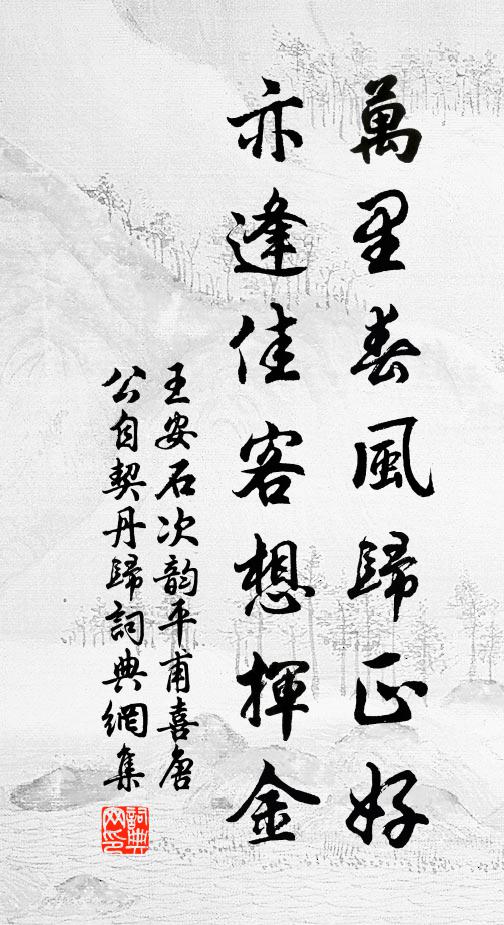 萬里春風歸正好
亦逢佳客想揮金
王安石次韵平甫喜唐
公自契丹歸詞典網集
詞典
网印